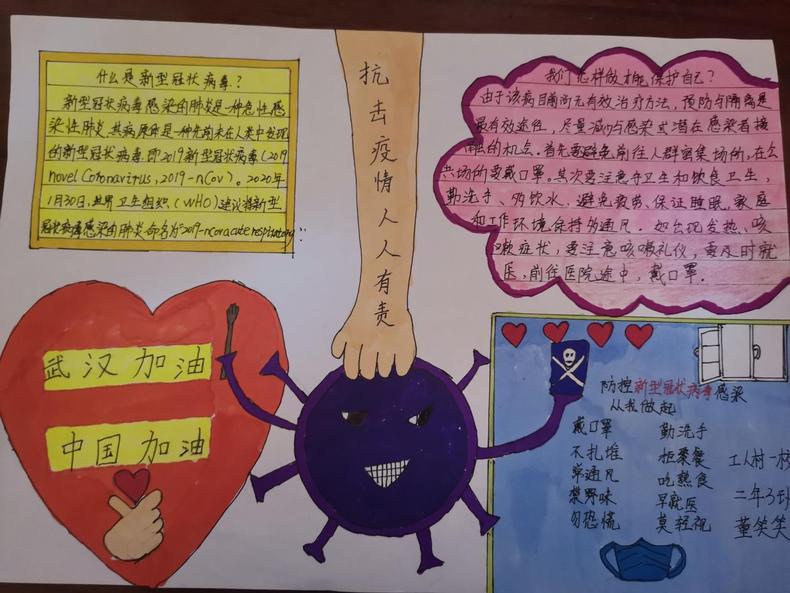 什么是新型冠状病毒?
新型冠状病毒感染的肺炎是一种急性感
染性肺炎,其病原体是一种先前未在人类中发现
的新型冠状病毒,即2019新型冠状病毒(2019
novel Coronavirus,2019-nCov)。2020年
1月30日,世界卫生组织(WHO)建议将新型
冠状病毒感染的肺炎命名为2019-ncoracuterespiratory
抗击疫情人人有责
我们怎样做才能保护自己?
由于该病目前尚无有效治疗方法,预防与隔离是
最有效途径,尽量减少与感染或潜在感染者接
触的机会。首先要避免前往人群密集场所,在公
共场所要戴口罩。其次要注意手卫生和饮食卫生,
勤洗手、多饮水,避免疲劳,保证睡眠,家庭
和工作环境保持多通风。如出现发热、咳
嗽症状,要注意咳嗽礼仪,要及时就
医,前往医院途中,戴口罩.
武汉加油
中国加油
防控新型冠状病毒感染
从我做起
戴口罩 勤洗手
不扎堆 拒聚餐
常通风 吃熟食
禁野味 早就医
勿恐慌 莫轻视
工人村一校
二年3班
董笑笑